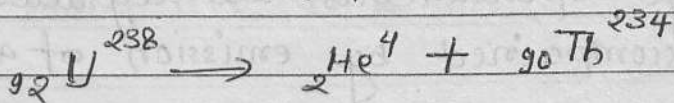 ₉₂U²³⁸ ⟶ ₂He⁴ + ₉₀Th²³⁴